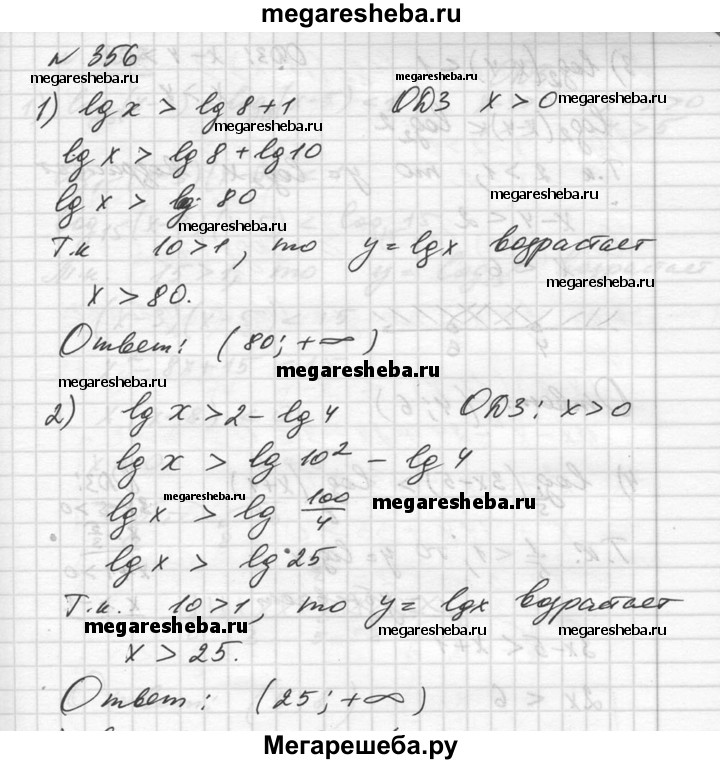 megaresheba.ru
№ 356
megaresheba.ru megaresheba.ru
1) lg x > lg 8 + 1 ОДЗ x > 0
megaresheba.ru megaresheba.ru
lg x > lg 8 + lg 10
lg x > lg 80
megaresheba.ru megaresheba.ru
Т.к 10 > 1, то y = lg x возрастает
megaresheba.ru
x > 80.
Ответ: (80; +∞)
megaresheba.ru megaresheba.ru
2) lg x > 2 - lg 4 ОДЗ: x > 0
lg x > lg 10² - lg 4
megaresheba.ru megaresheba.ru
lg x > lg 100/4
lg x > lg 25
Т.к. 10 > 1, то y = lg x возрастает
megaresheba.ru megaresheba.ru megaresheba.ru
x > 25.
Ответ: (25; +∞)
Мегарешеба.ру